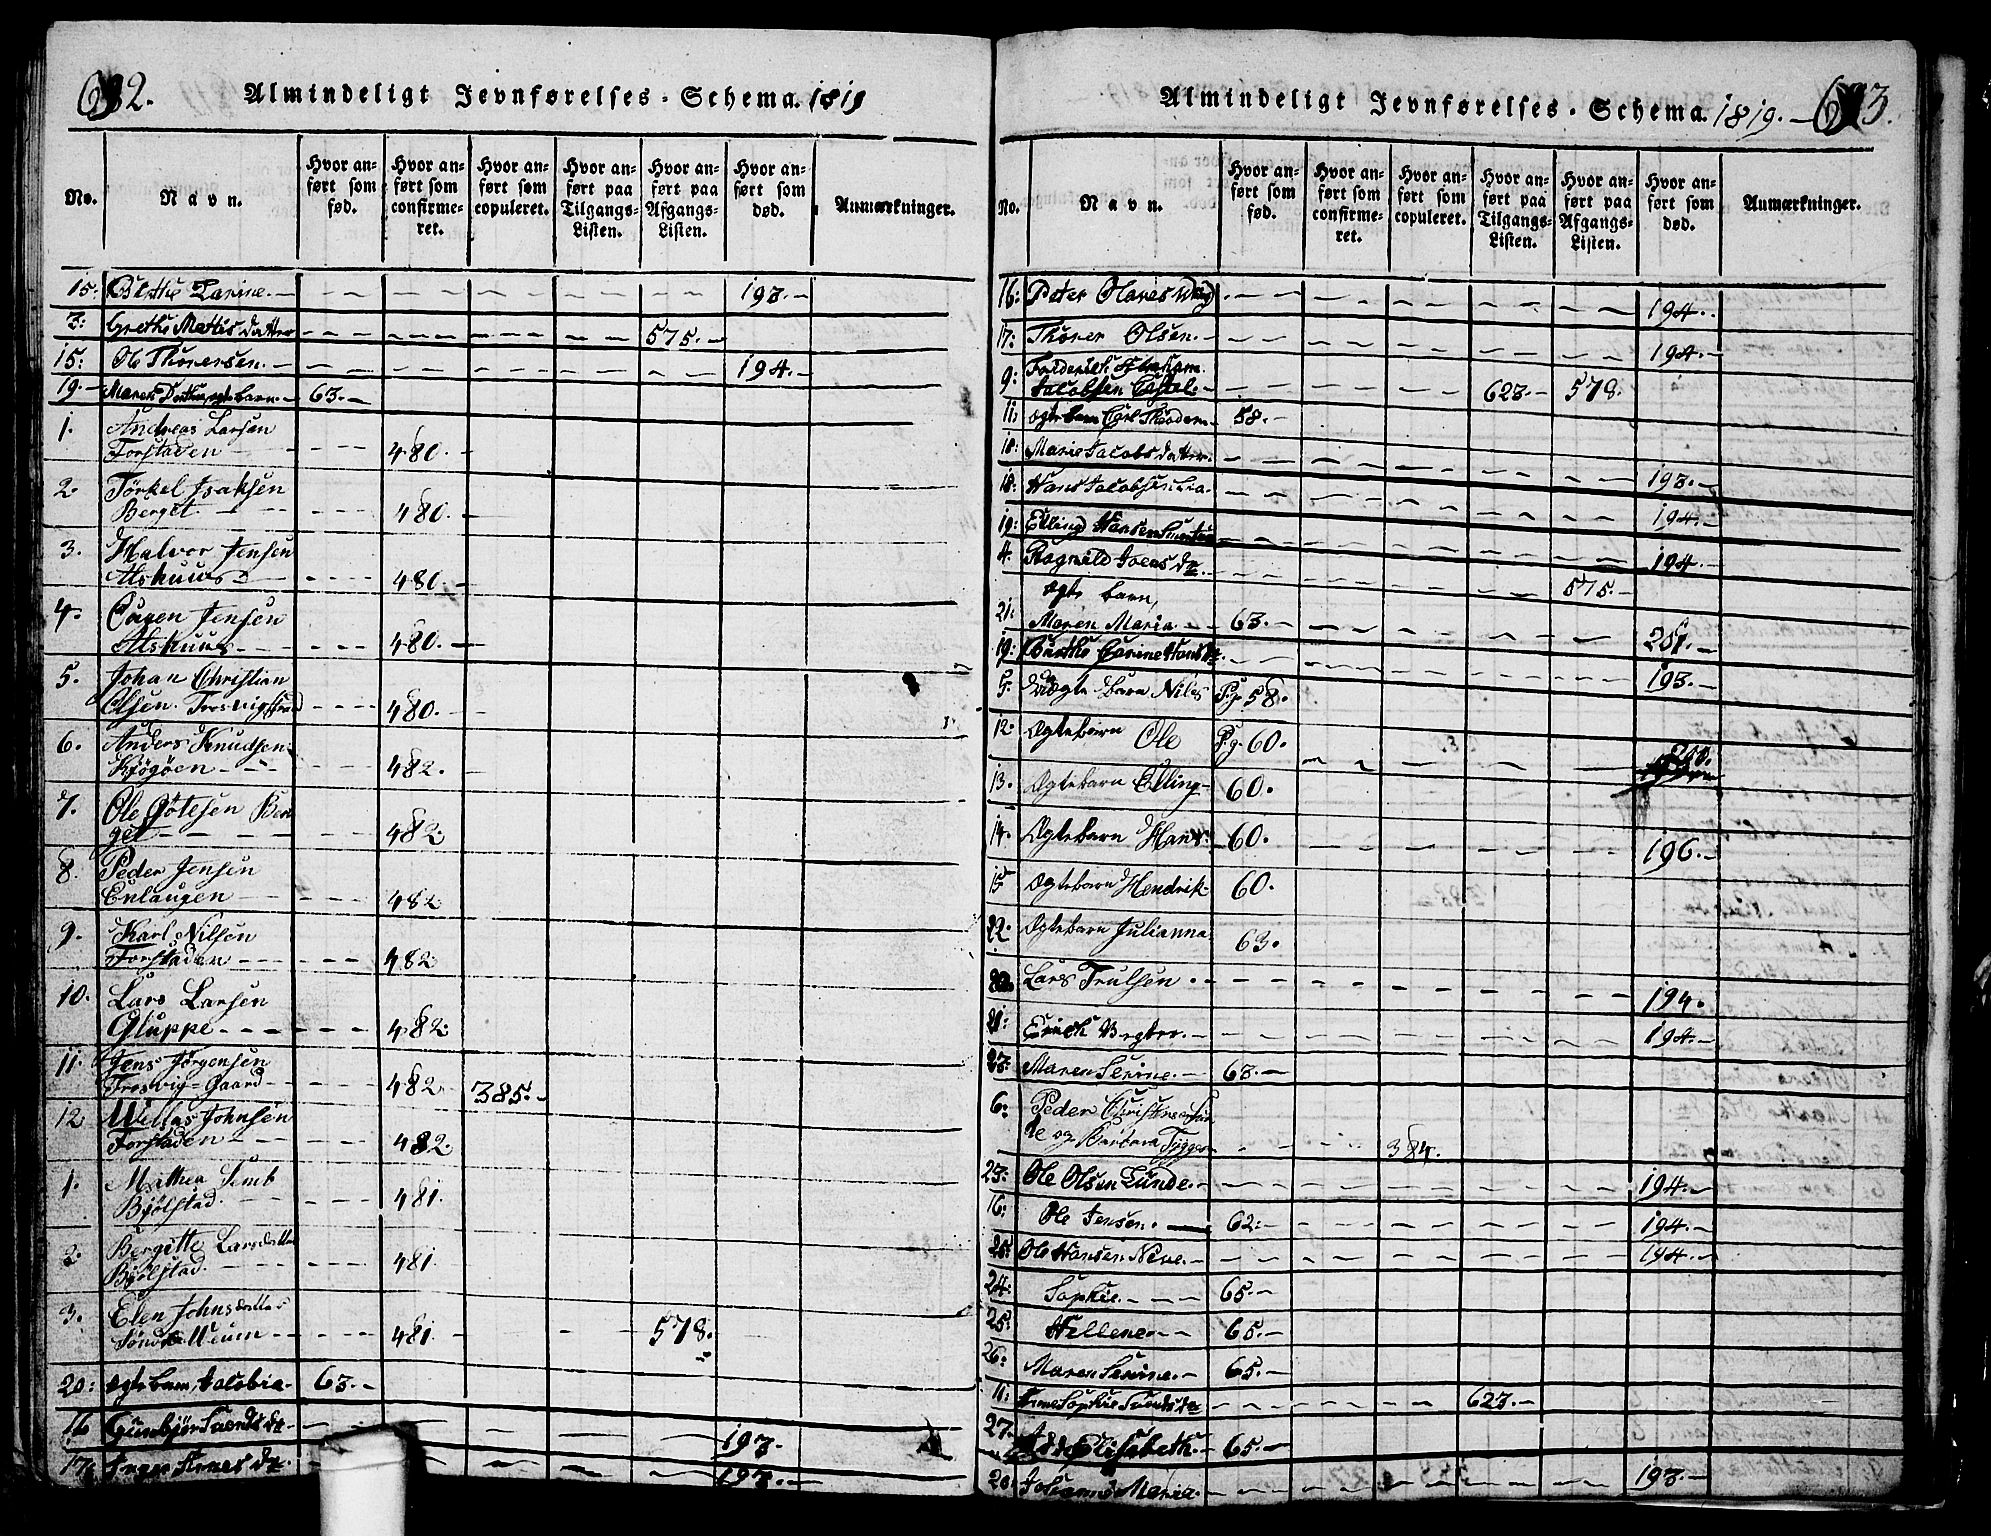 692.
Almindeligt Jevnførelses-Schema. 1819
No.
Navn.
Hvor anført som fød.
Hvor anført som confirmeret.
Hvor anført som copuleret.
Hvor anført paa Tilgangs-Listen.
Hvor anført paa Afgangs-Listen.
Hvor anført som død.
Anmærkninger.
15: Birthe Karine. 193.
3: Grethe Mathisdatter 575.
15: Ole Thoresen. 194.
19. Maren Dorthea, ægte barn. 63.
1. Andreas Larsen
Forstaden 480.
2. Törkel Isaksen
Berget 480.
3. Halvor Jensen
Alshuus 480.
4. Jensen
Alshuus 480.
5. Johan Christian
Olsen. Trosvigstrand 480.
6. Anders Knudsen
Kjøgøen 482.
7. Ole Jensen Ber
get 482.
8. Peder Jensen
Enhaugen 482
9. Karl Nilsen
Forstaden 482
10. Lars Larsen
Gluppe 482.
11. Jens Jørgensen
Trosvig-Gaard 482 385.
12 Johnsen
Forstaden 482
1. Mathea Semb
Bjölstad. 481.
2. Bergitte Larsdatter
Bjölstad. 481.
3. Elen Johnsdatter
Sönd. Veum 481 578.
20: ægte barn, Jacobia. 63.
16 Gunbjør Svendsdr 193.
17. Inger Arnesdr 193.
Almindeligt Jevnførelses-Schema. 1819. 693.
No.
Navn.
Hvor anført som fød.
Hvor anført som confirmeret.
Hvor anført som copuleret.
Hvor anført paa Tilgangs-Listen.
Hvor anført paa Afgangs-Listen.
Hvor anført som død.
Anmærkninger.
16: Peter 194.
17: Thorer Olsen. 194.
9: Friderich Abraham
Jacobsen 623. 578.
11: ægte barn Carl Theodor 58.
18: Marie Jacobsdatter. 193.
18: Hans Jacobsen Lia. 194.
19: Elling Hansen 194.
4. Ragnild Joensdr. 575.
ægte barn,
21: Maren Maria 63. 201.
19: Birthe Carine Hansdr. 195.
5. Uægte Barn Niles Pg 58.
12. Ægtebarn Ole Pg. 60. 200.
13. Ægtebarn Elling 60.
14. Ægtebarn Hans. 60. 196.
15 Ægtebarn Hendrik 60.
22. Ægtebarn Julianna 63.
Lars Trulsen 194.
21: Erich 194.
23: Maren Serine. 63.
6: Peder Christensen
og Barbara 384.
23: Ole Olsen Lunde. 194.
16: Ole Jensen. 62. 194.
25: Ole Hansen 194.
24: Sophie. 65.
25: Hellene. 65.
26: Maren Serine. 65.
11: Anne Sophie Svendsdr 623.
27. Elisabeth. 65.
20: Johanne Maria. 193.